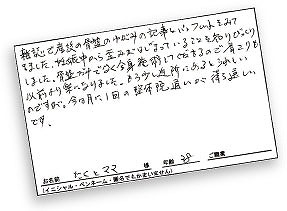 雑誌で産後の骨盤のゆがみの記事を
きました。妊娠中から歪みがはじまっていることを知りびっくり
しました。骨盤だけでなく全身施術してくださるので肩こりも
以前より楽になりました。もう少し近所にあるとうれしい
のですが。今は月に1回の整体院通いが待ち遠しい
です。
お名前 たくとママ 様 年齢 38 ご職業
(イニシャル・ペンネーム・匿名でもかまいません)